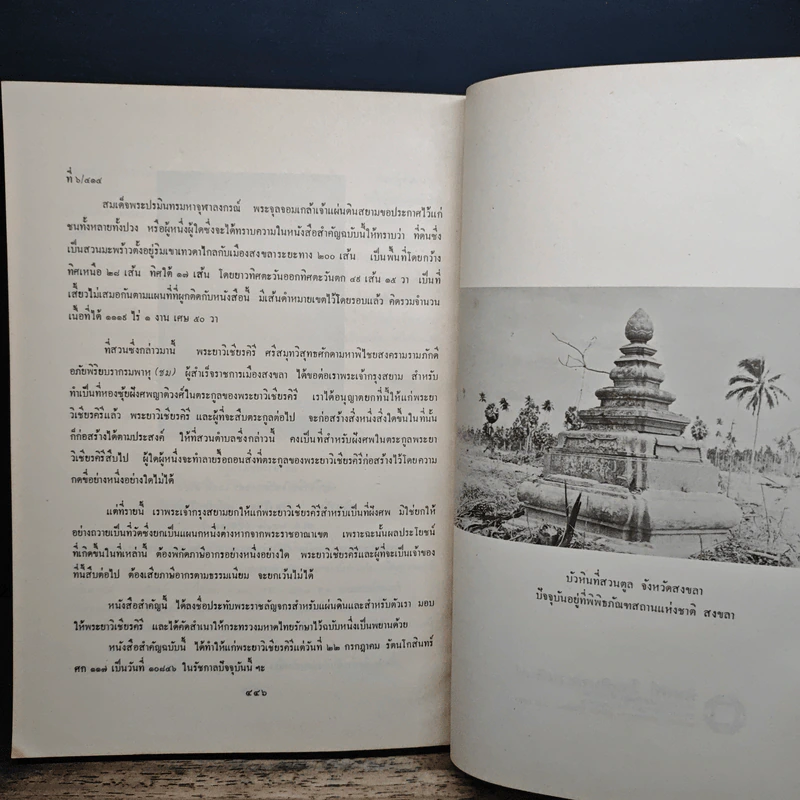 ที่ ๖/๔๑๔
สมเด็จพระปรมินทรมหาจุฬาลงกรณ์ พระจุลจอมเกล้าเจ้าแผ่นดินสยามขอประกาศไว้แก่
ชนทั้งหลายทั้งปวง หรือผู้หนึ่งผู้ใดซึ่งจะได้ทราบความในหนังสือสำคัญฉบับนี้ให้ทราบว่า ที่ดินซึ่ง
เป็นสวนมะพร้าวตั้งอยู่ริมเขาเทวดาใกลกับเมืองสงขลาระยะทาง ๒๐๐ เส้น เป็นพื้นที่โดยกว้าง
ทิศเหนือ ๒๘ เส้น ทิศใต้ ๑๗ เส้น โดยยาวทิศตะวันออกทิศตะวันตก ๔๙ เส้น ๑๕ วา เป็นที่
เสี้ยวไม่เสมอกันตามแผนที่ที่ผูกติดกับหนังสือนี้ มีเส้นดำหมายเขตไว้โดยรอบแล้ว คิดรวมจำนวน
เนื้อที่ได้ ๑๑๑๙ ไร่ ๑ งาน เศษ ๕๐ วา
ที่สวนซึ่งกล่าวมานี้ พระยาวิเชียรคิรี ศรีสมุทวิสุทธศักดามหาพิไชยสงครามรามภักดี
อภัยพิริยบรากรมพาหุ (ชม) ผู้สำเร็จราชการเมืองสงขลา ได้ขอต่อเราพระเจ้ากรุงสยาม สำหรับ
ทำเป็นที่ฮองซุ้ยฝังศพญาติวงศ์ในตระกูลของพระยาวิเชียรคิรี เราได้อนุญาตยกที่นี้ให้แก่พระยา
วิเชียรคิรีแล้ว พระยาวิเชียรคิรี และผู้ที่จะสืบตระกูลต่อไป จะก่อสร้างสิ่งหนึ่งสิ่งใดขึ้นในที่นั้น
ก็ก่อสร้างได้ตามประสงค์ ให้ที่สวนตำบลซึ่งกล่าวนี้ คงเป็นที่สำหรับฝังศพในตระกูลพระยา
วิเชียรคิรีสืบไป ผู้ใดผู้หนึ่งจะทำลายรื้อถอนสิ่งที่ตระกูลของพระยาวิเชียรคิรีก่อสร้างไว้โดยความ
กดขี่อย่างหนึ่งอย่างใดไม่ได้
แต่ที่รายนี้ เราพระเจ้ากรุงสยามยกให้แก่พระยาวิเชียรคิรีสำหรับเป็นที่ฝังศพ มิใช่ยกให้
อย่างถวายเป็นที่วัดซึ่งยกเป็นแผนกหนึ่งต่างหากจากพระราชอาณาเขต เพราะฉะนั้นผลประโยชน์
ที่เกิดขึ้นในที่เหล่านี้ ต้องพิกัดภาษีอากรอย่างหนึ่งอย่างใด พระยาวิเชียรคิรีและผู้ที่จะเป็นเจ้าของ
ที่นี้สืบต่อไป ต้องเสียภาษีอากรตามธรรมเนียม จะยกเว้นไม่ได้
หนังสือสำคัญนี้ ได้ลงชื่อประทับพระราชลัญจกรสำหรับแผ่นดินและสำหรับตัวเรา มอบ
ให้พระยาวิเชียรคิรี และได้คัดสำเนาให้กระทรวงมหาดไทยรักษาไว้ฉบับหนึ่งเป็นพยานด้วย
หนังสือสำคัญฉบับนี้ ได้ทำให้แก่พระยาวิเชียรคิรีแต่วันที่ ๒๒ กรกฎาคม รัตนโกสินทร์
ศก ๑๑๗ เป็นวันที่ ๑๐๘๔๖ ในรัชกาลปัจจุบันนี้ ฯะ
๔๔๖
บัวหินที่สวนตูล จังหวัดสงขลา
ปัจจุบันอยู่ที่พิพิธภัณฑสถานแห่งชาติ สงขลา